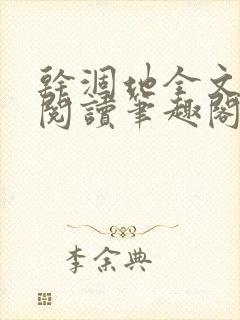 幹涸地全文
閱讀筆趣閣
李余典